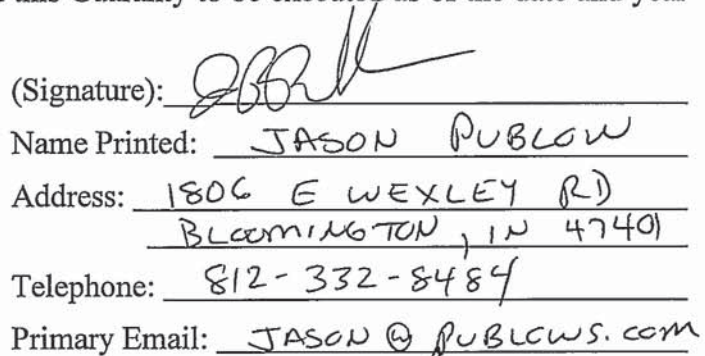 this Guaranty to be executed as of the date and year
(Signature):
Name Printed: JASON PUBLOW
Address: 1806 E WEXLEY RD
BLOOMINGTON, IN 47401
Telephone: 812-332-8484
Primary Email: JASON @ PUBLOWS.COM